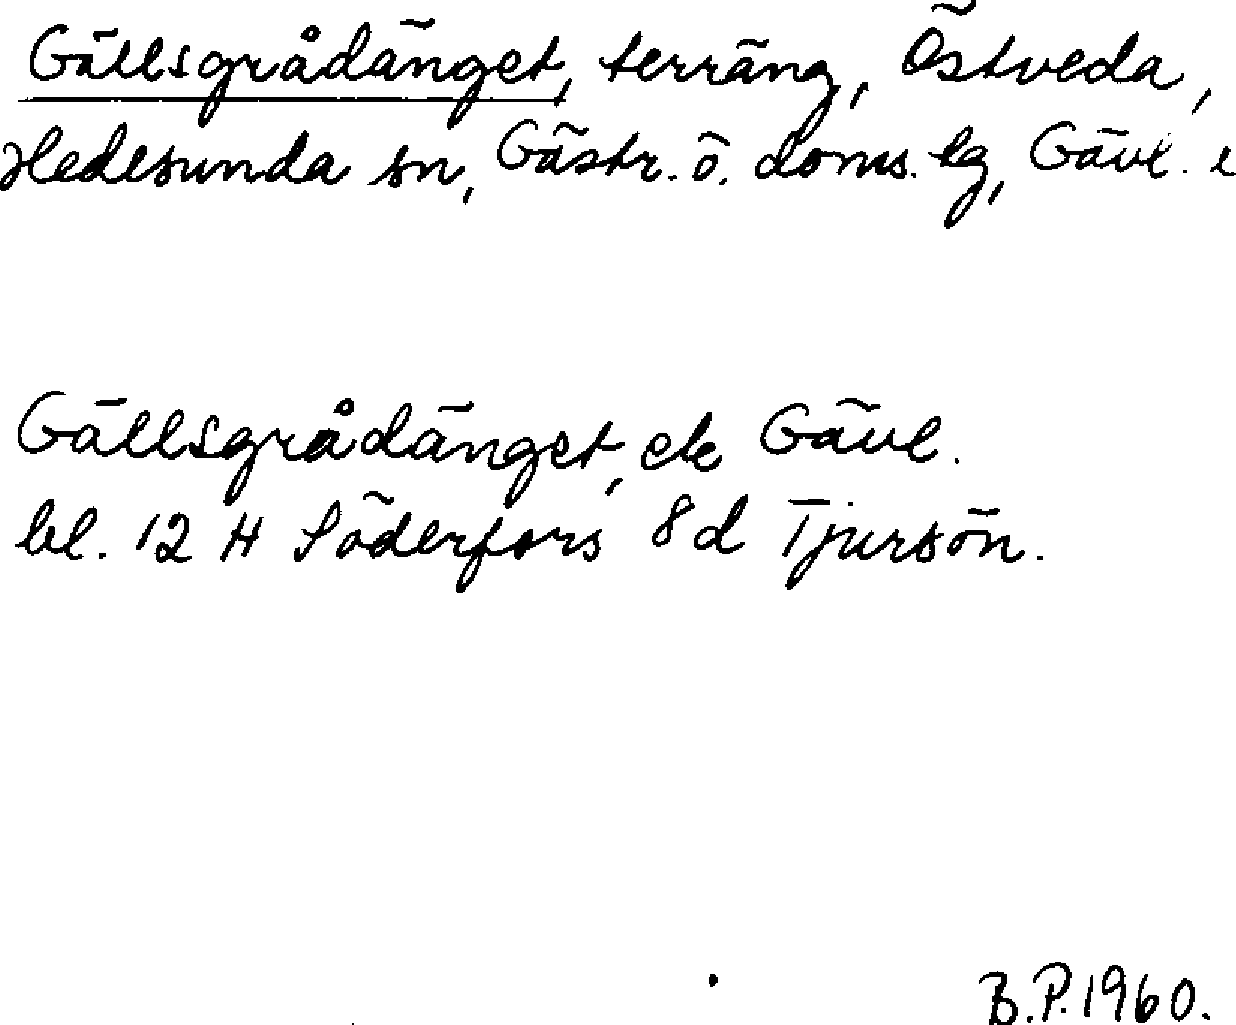 Gällsgrådänget, terräng, Östveda,
Hedesunda sn, Gästr. ö. doms. lg, Gävl.
Gällsgrådänget, ek Gävl.
bl. 12 H Söderfors 8d Tjursön.
B.P. 1960.